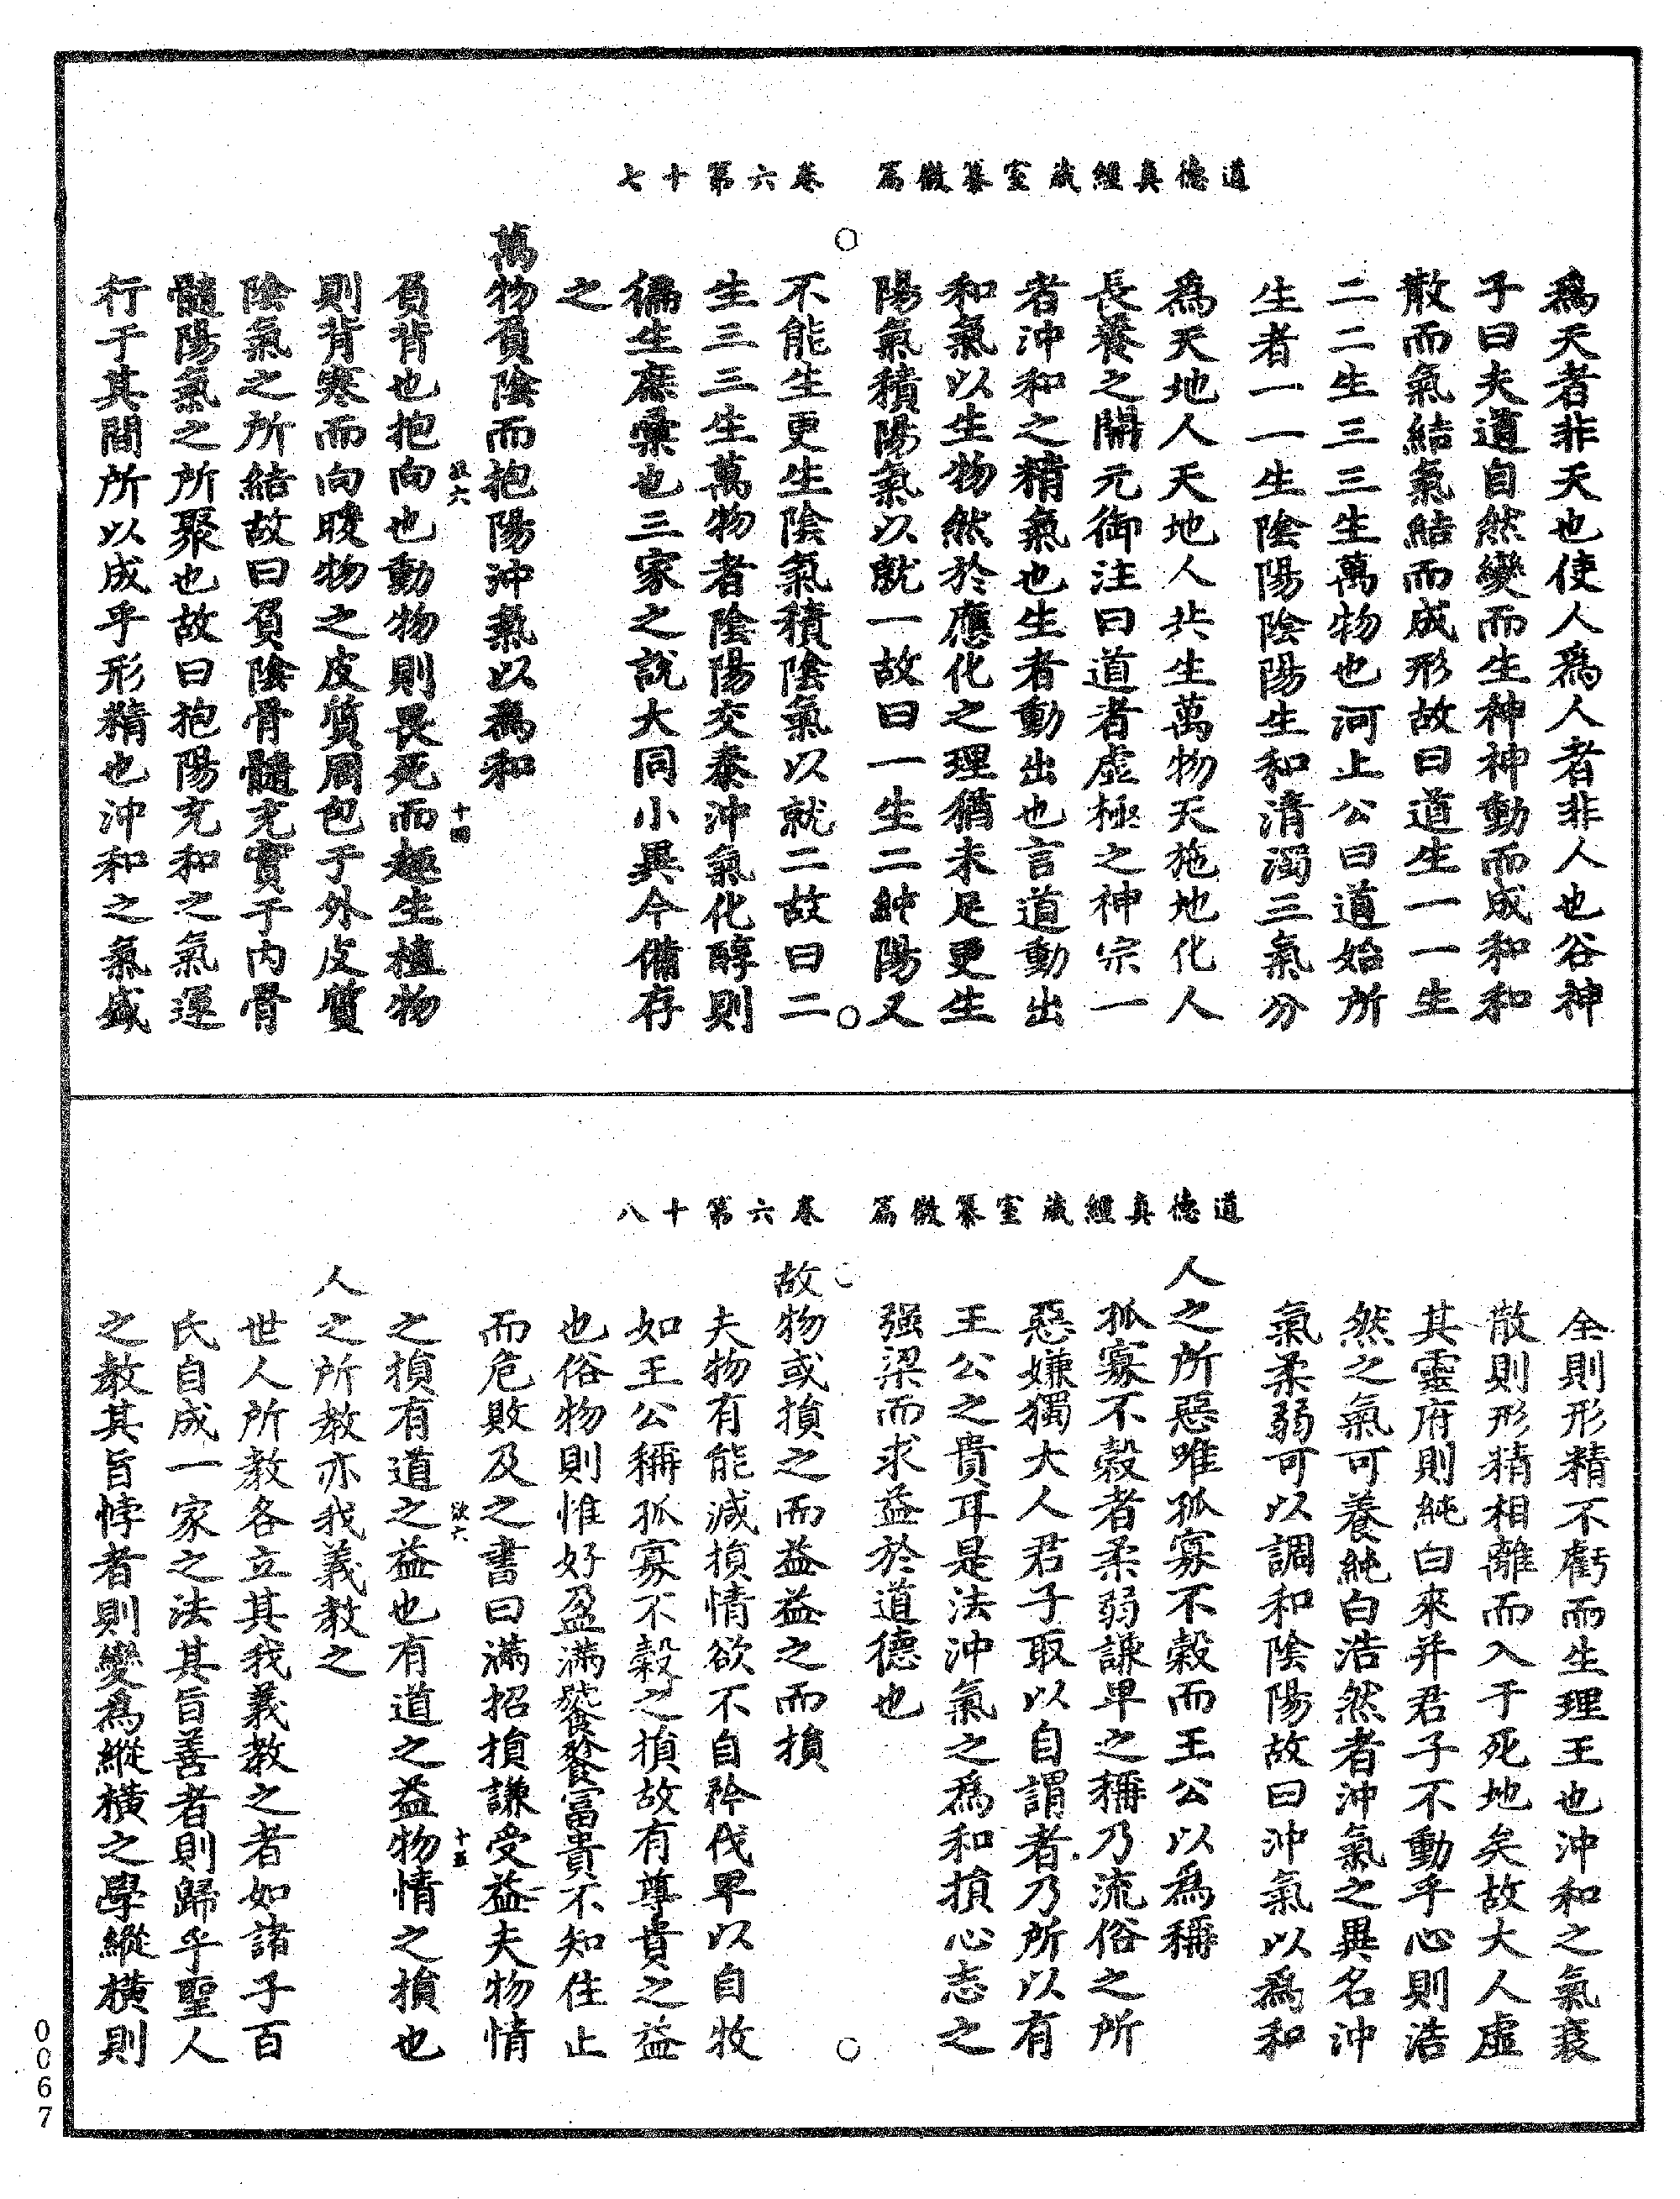 道德真經藏室纂微篇　卷六第十七
為天者非天也使人為人者非人也谷神
子曰夫道自然變而生神神動而成和和
散而氣結氣結而成形故曰道生一一生
二二生三三生萬物也河上公曰道始所
生者一一生陰陽陰陽生和清濁三氣分
為天地人天地人共生萬物天施地化人
長養之開元御注曰道者虛極之神宗一
者沖和之精氣也生者動出也言道動出
和氣以生物然於應化之理猶未足更生
陽氣積陽氣以就一故曰一生二純陽又
不能生更生陰氣積陰氣以就二故曰二
生三三生萬物者陰陽交泰沖氣化醇則
徧生庶彙也三家之說大同小異今備存
之
萬物負陰而抱陽沖氣以為和
負背也抱向也動物則畏死而趣生植物
則背寒而向暖物之皮質周包于外皮質
陰氣之所結故曰負陰骨髓充實于內骨
髓陽氣之所聚也故曰抱陽充和之氣運
行于其間所以成乎形精也沖和之氣盛
欲六
十四
道德真經藏室纂微篇　卷六第十八
全則形精不虧而生理王也沖和之氣衰
散則形精相離而入于死地矣故大人虛
其靈府則純白來并君子不動乎心則浩
然之氣可養純白浩然者沖氣之異名沖
氣柔弱可以調和陰陽故曰沖氣以為和
人之所惡唯孤寡不穀而王公以為稱
孤寡不穀者柔弱謙卑之稱乃流俗之所
惡嫌獨大人君子取以自謂者乃所以有
王公之貴耳是法沖氣之為和損心志之
強梁而求益於道德也
故物或損之而益益之而損
夫物有能減損情欲不自矜伐卑以自牧
如王公稱孤寡不穀之損故有尊貴之益
也俗物則惟好盈滿饕餮富貴不知住止
而危敗及之書曰滿招損謙受益夫物情
之損有道之益也有道之益物情之損也
欲六
十五
人之所教亦我義教之
世人所教各立其我義教之者如諸子百
氏自成一家之法其旨善者則歸乎聖人
之教其旨悖者則變為縱橫之學縱橫則
0067